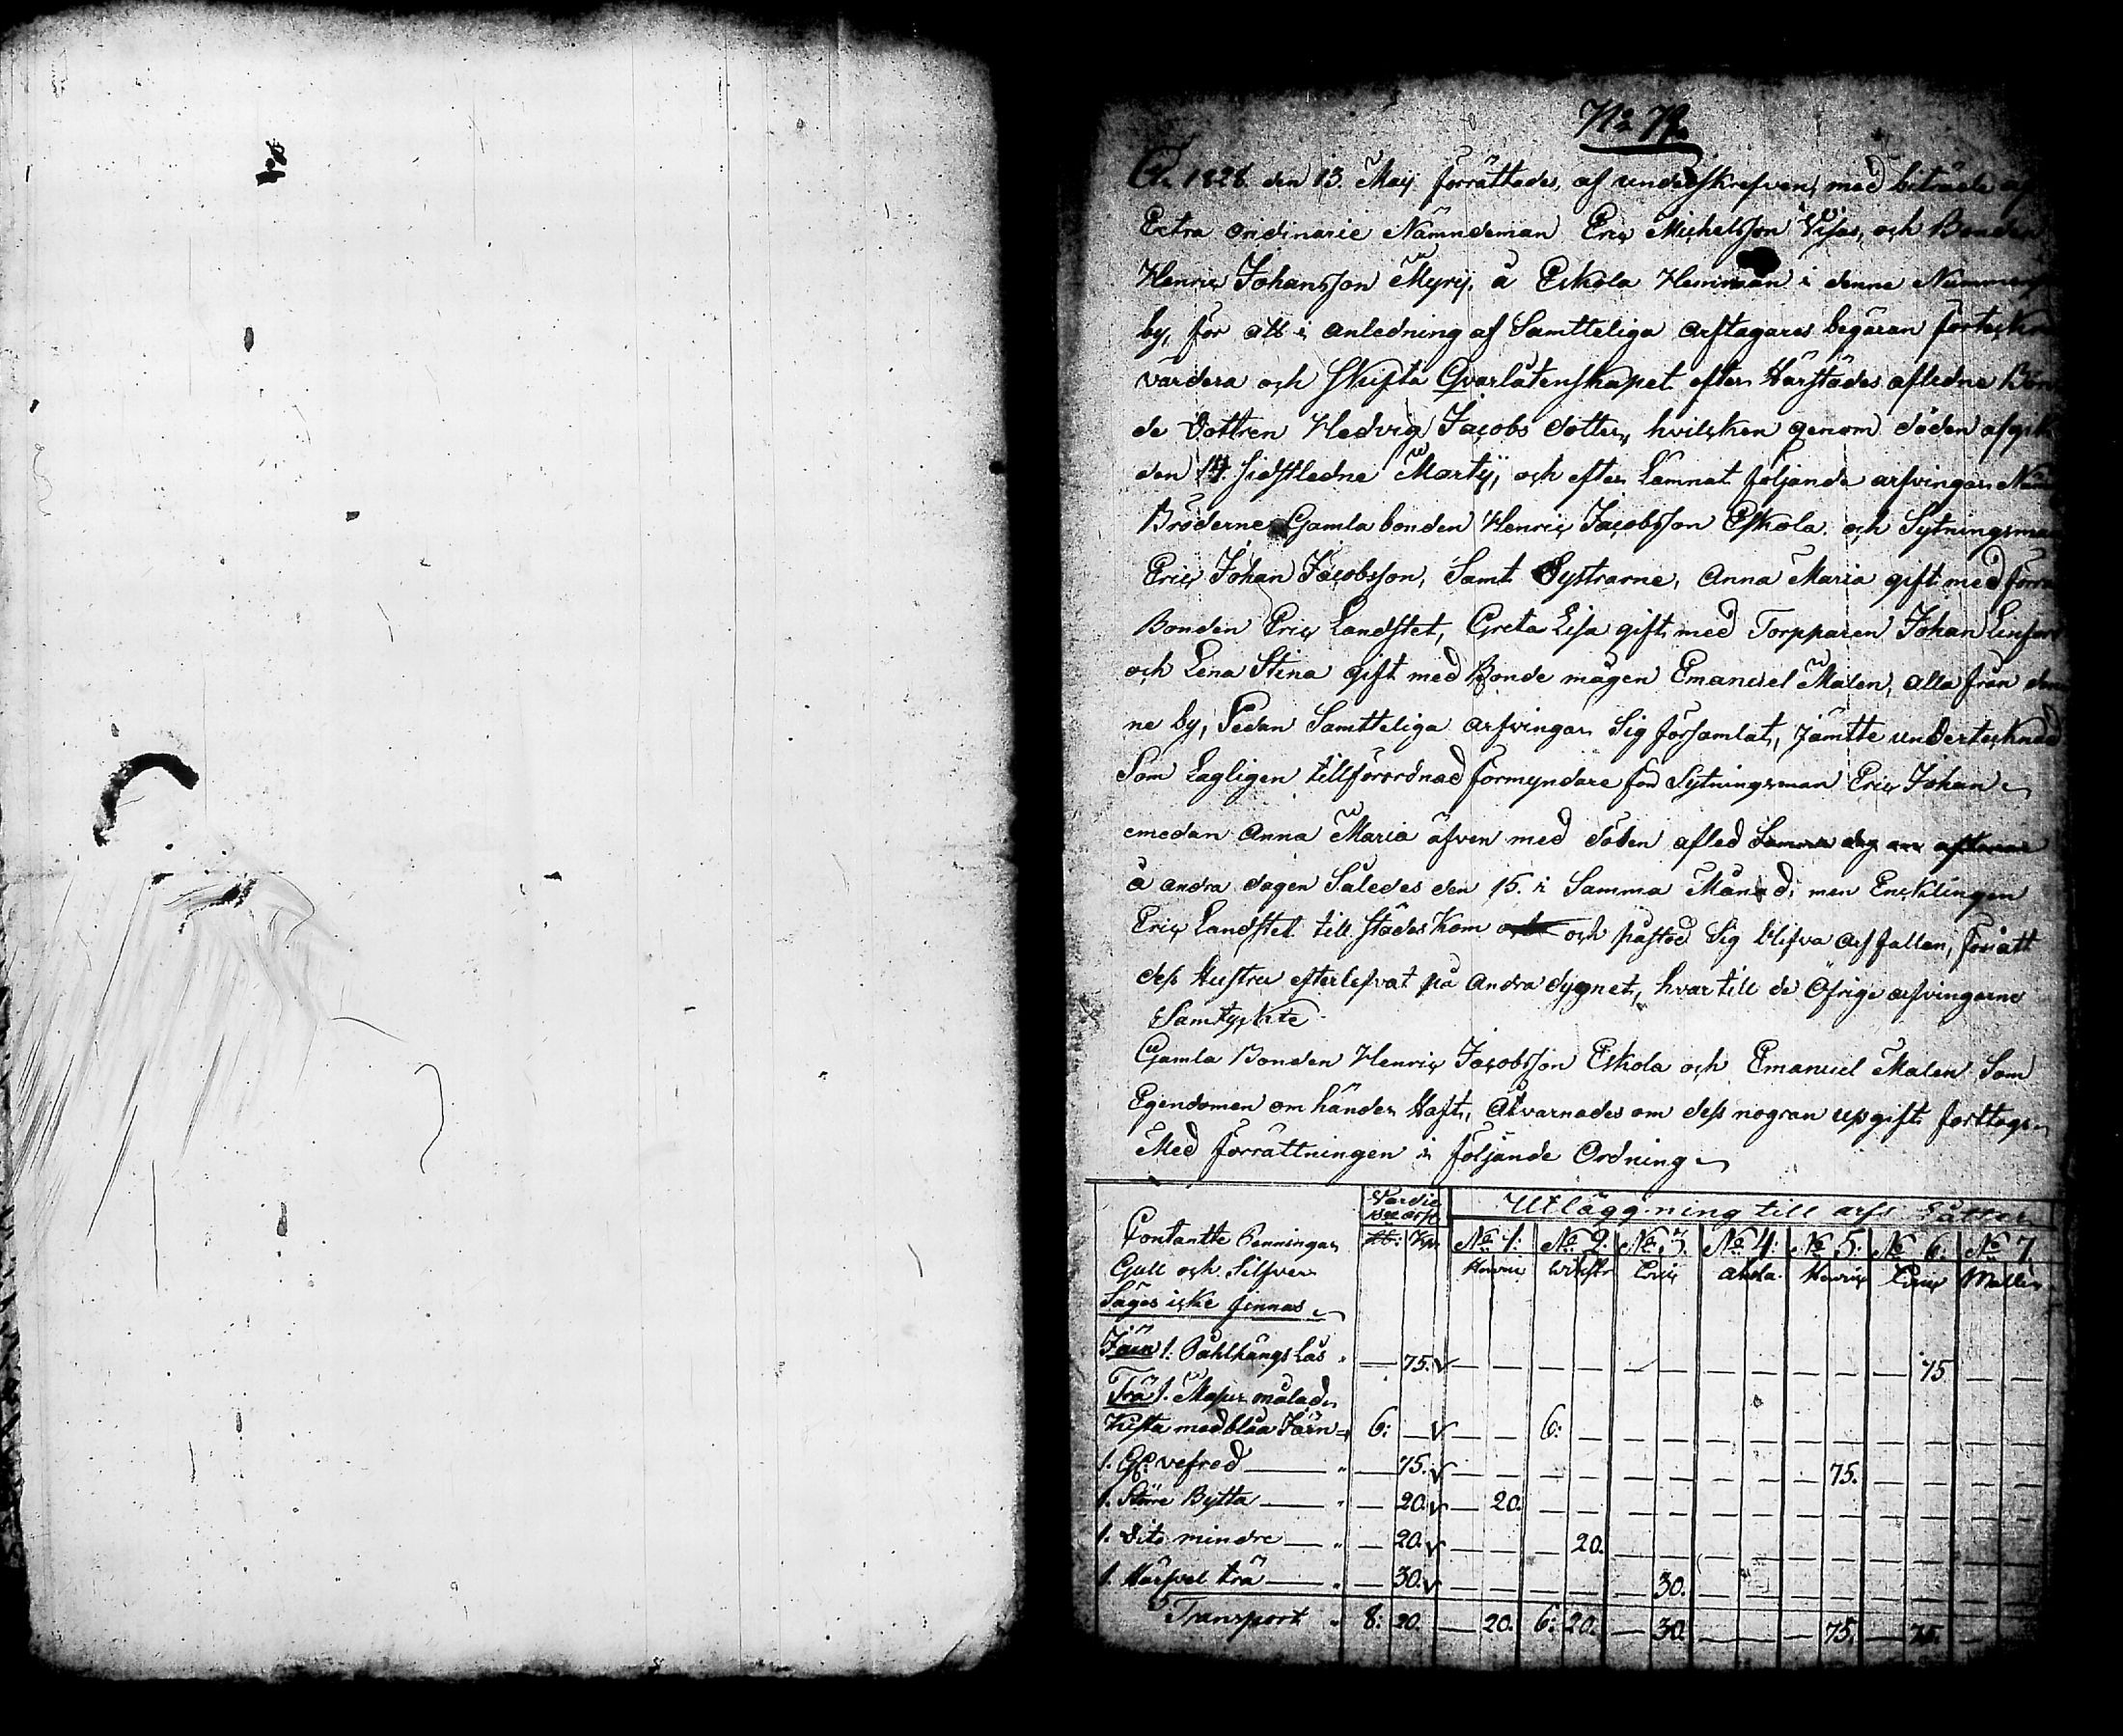 No 72.
År 1828. den 13. Maij förrättades, af underskrefven, med biträde af
Extra ordinarie Nämndeman Eric Michelsson Visas, och Bonden
Henric Johansson Myry, å Eskola Hemman i denne Nummers
by, för att i anledning af Samtteliga arftagares begäran förteckna
värdera och Skifta Qvarlåtenskapet efter Härstädes afledne Bon
de Dottren Hedvig Jacobs dotter, hvilcken genom döden afgik
den 14. sidstledne Martij, och efter Lemnat följande arfvingar
Bröderne Gamla bonden Henric Jacobsson Eskola. och Sytningsman
Eric Johan Jacobsson, Samt Systrarne, Anna Maria gift med förra
Bonden Eric Landstet, Greta Lisa gift med Torpparen Johan
och Lena Stina gift med Bonde mågen Emanuel Malen, alla från den
ne by, Sedan Samtteliga arfvingar Sig församlat, jämtte undertecknad
Som Lagligen tillförordnad förmyndare för Sytningsman Eric Johan
emedan Anna Maria äfven med döden afled Samma dag
å andra dagen Således den 15. i Samma Månad; men Encklingen
Eric Landstet till städes Kom och påstod Sig blifva arf fallen, för att
dess Hustru efterlefvat på Andra dygnet, hvar till de Öfrige arfvingarne
Samtyckte
Gamla Bonden Henric Jacobsson Eskola och Emanuel Malen Som
Egendomen om händer Haft, Åtvarnades om dess nogran upgift förttogs
Med förrättningen i följande Ordning
Utläggning till arfs Låtter
Contantte Penningar No 1: No 2: No 3. No 4: No 5: No 6: No 7
Gull och Silfver Henric Eric Henric Eric
Sages icke finnas
Järn 1. Påhlhängs Lås " — 75. 75
Trä 1. Masur målad
Kista med blåa Järn 6: — 6:
1. vefred " — 75. 75.
1. Större Bytta " — 20. 20.
1. Dito mindre " — 20. 20.
1. Härfvel trä " — 30. 30.
Transport " 8: 20. — 20. 6: 20. — 30. — 75. — 75.